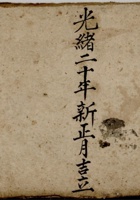 光緒二十年新正月吉立